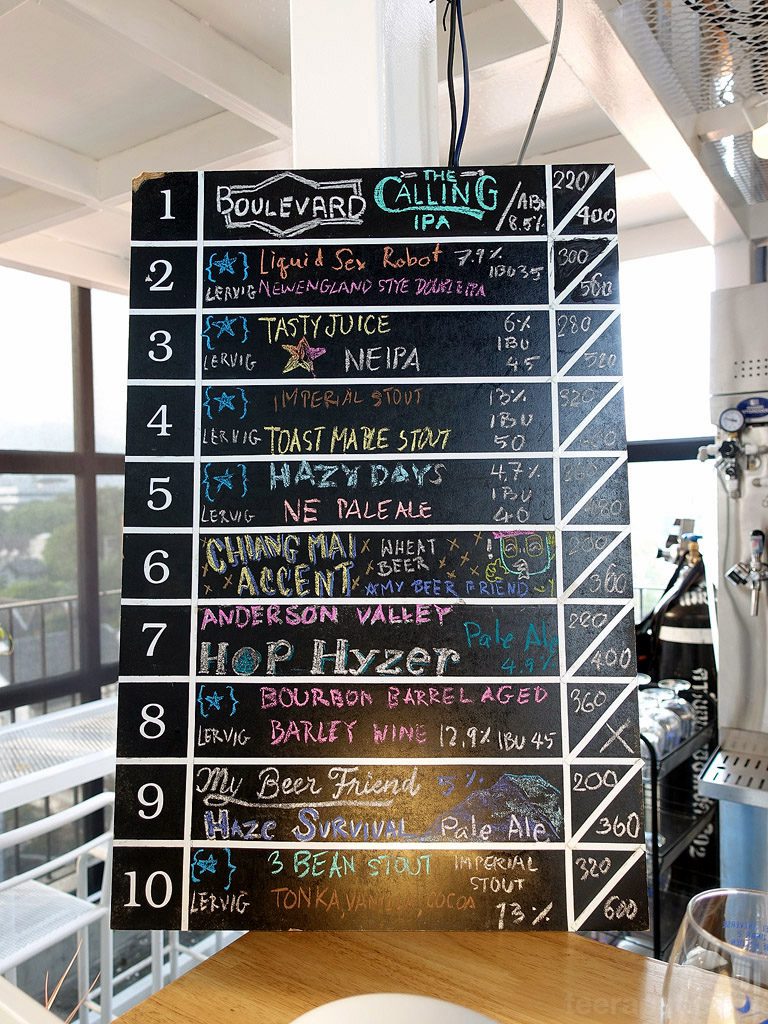 1 BOULEVARD THE CALLING IPA /ABV 8.5% 220 / 400
2 Liquid Sex Robot 7.9% IBU 35 300 / 560
LERVIG NEWENGLAND STYE DOUBLE IPA
3 TASTY JUICE 6% 280 / 520
LERVIG NEIPA IBU 45
4 IMPERIAL STOUT 13% 320
LERVIG TOAST MAPLE STOUT IBU 50
5 HAZY DAYS 4.7%
LERVIG NE PALE ALE IBU 40
6 CHIANG MAI ACCENT WHEAT BEER 200 / 360
MY BEER FRIEND
7 ANDERSON VALLEY 220 / 400
HOP Hyzer Pale Ale 4.9%
8 BOURBON BARREL AGED 360 / X
LERVIG BARLEY WINE 12.9% IBU 45
9 My Beer Friend 5% 200 / 360
HAZE SURVIVAL Pale Ale
10 3 BEAN STOUT IMPERIAL STOUT 320 / 600
LERVIG TONKA, VANILLA, COCOA 13%